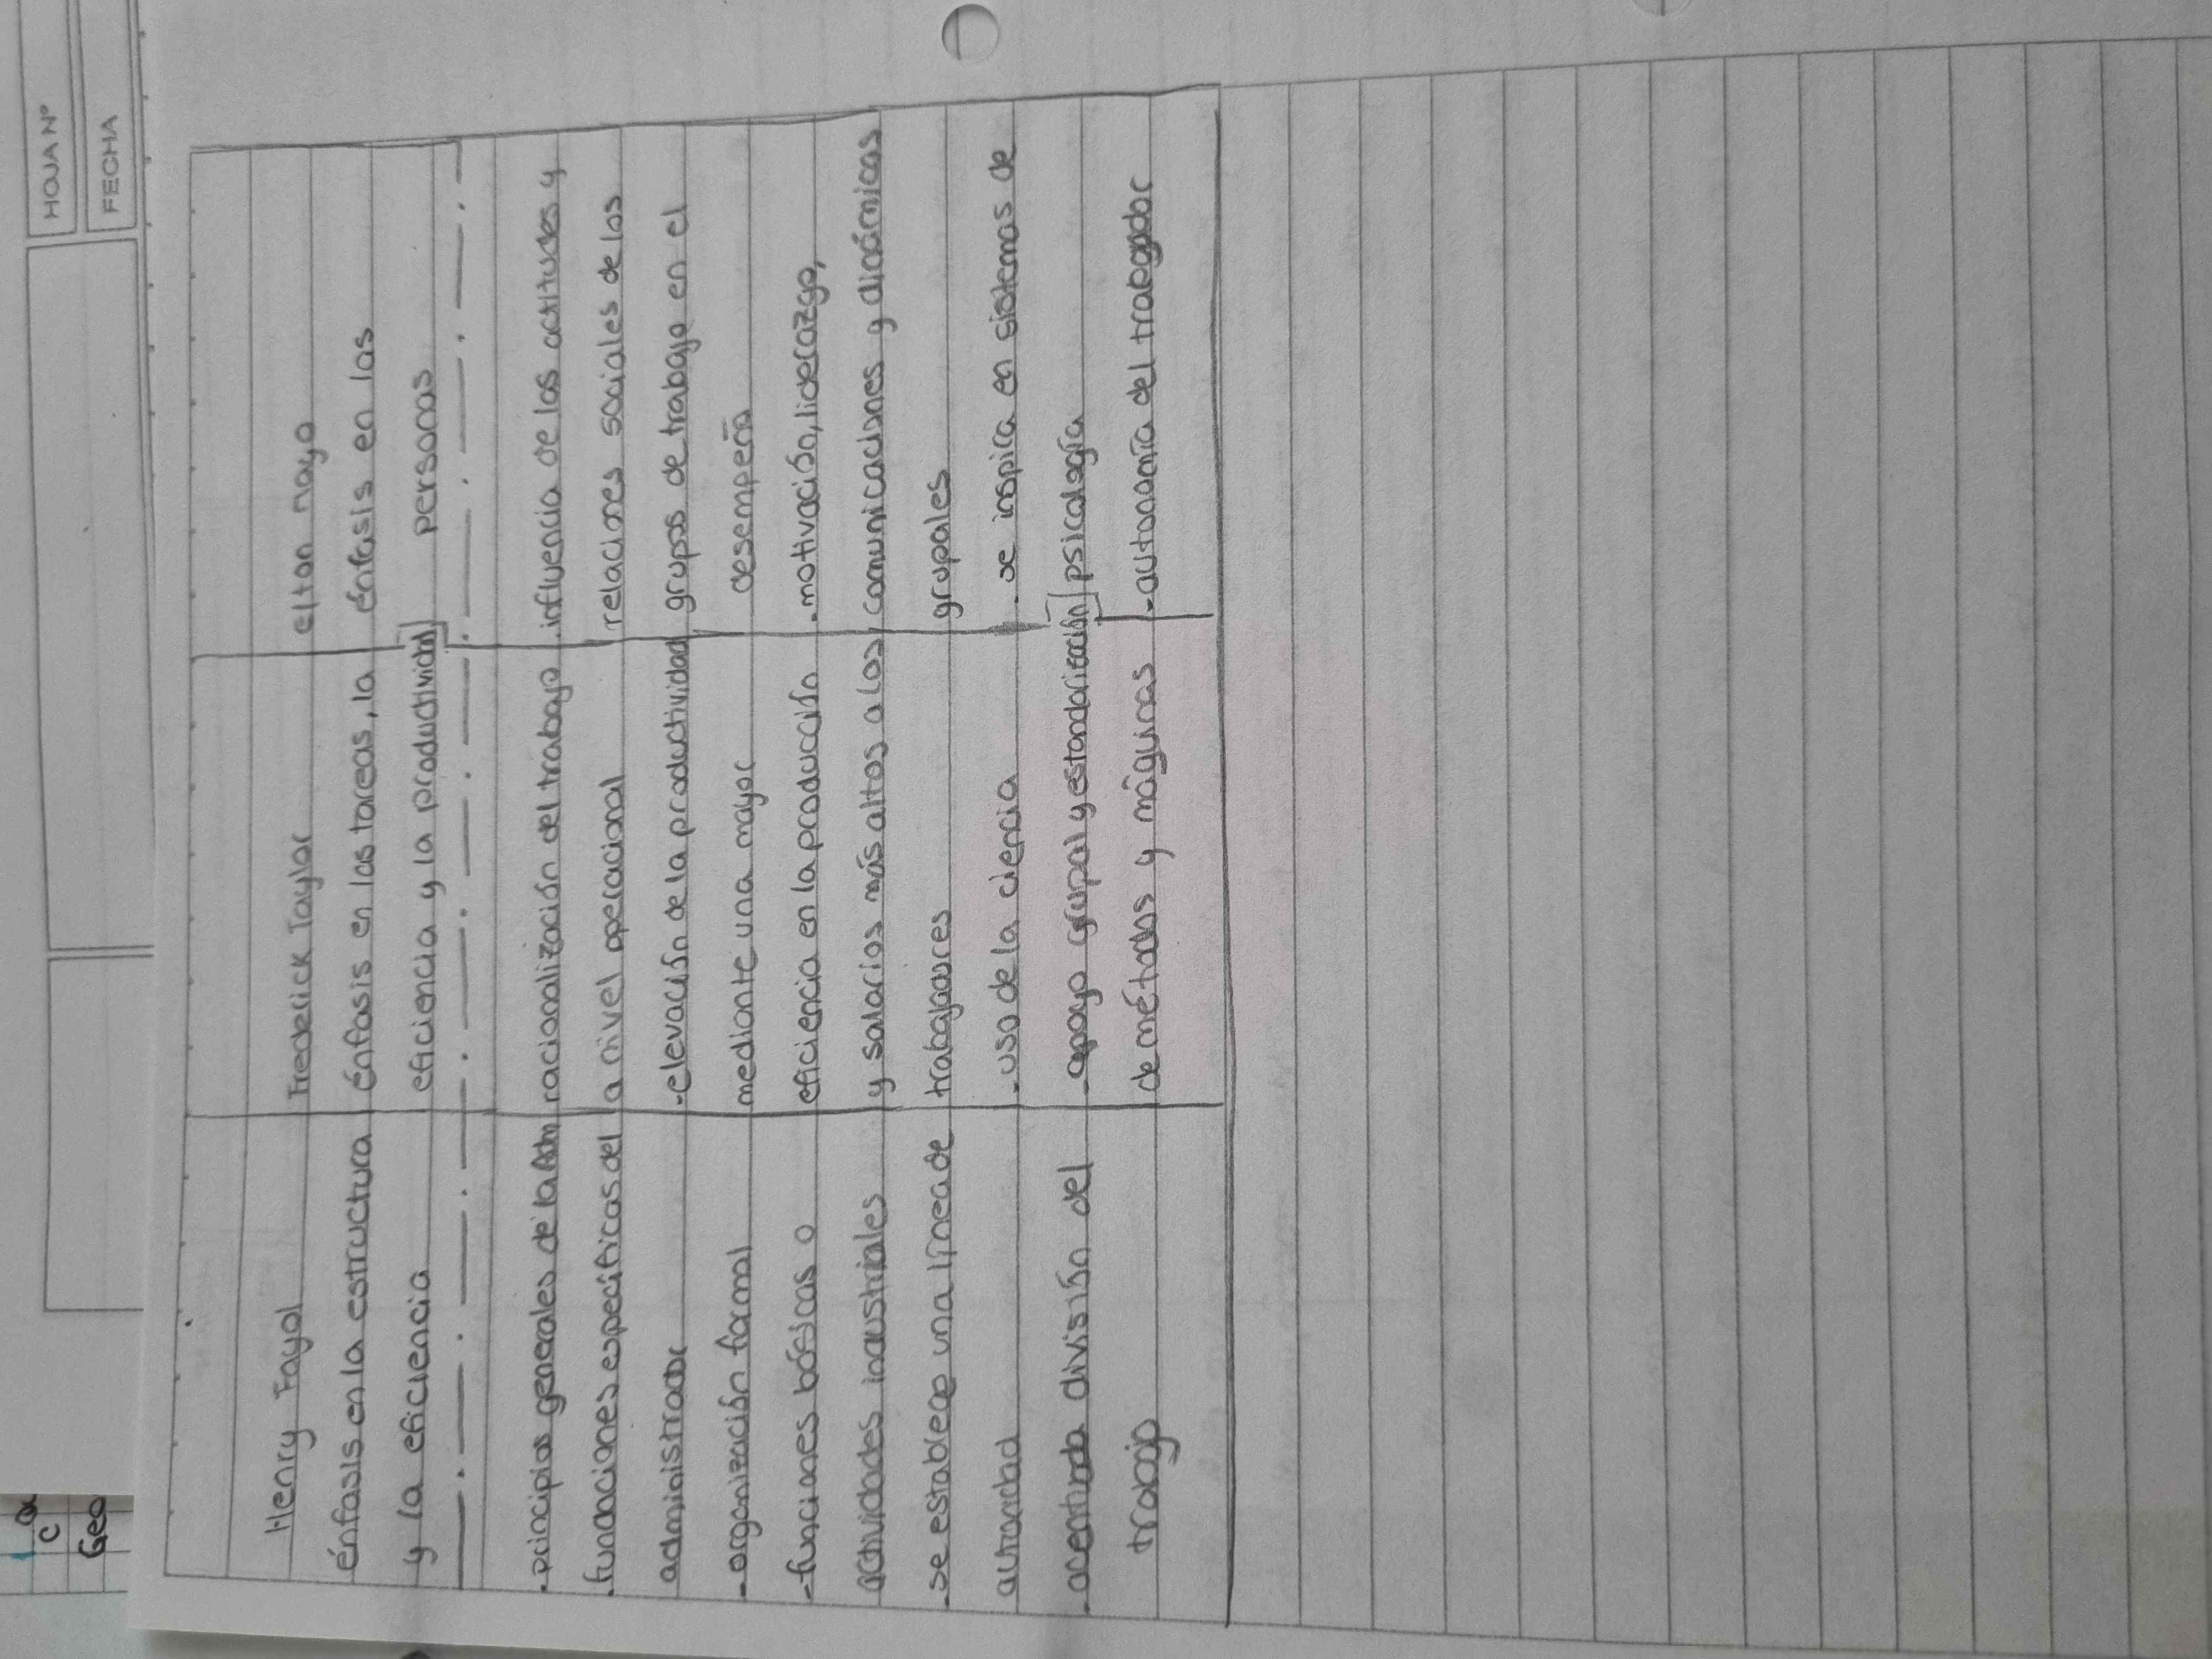 HOJA Nº
FECHA
Geo
Henry Fayol
énfasis en la estructura
y la eficiencia
.principios generales de la Adm
.funciones especificas del
administrador
-organización formal
-funciones básicas o
actividades industriales
-se establece una línea de
autoridad
-acentuada división del
trabajo
Frederick Taylor
énfasis en las tareas, la
eficiencia y la productividad
racionalización del trabajo
a nivel operacional
-elevación de la productividad
mediante una mayor
eficiencia en la producción
y salarios más altos a los
trabajadores
.uso de la ciencia
-apoyo grupal y estandarización
de métodos y máquinas
elton mayo
énfasis en las
personas
.influencia de las actitudes y
relaciones sociales de los
grupos de trabajo en el
desempeño
.motivación, liderazgo,
comunicaciones y dinámicas
grupales
.se inspira en sistemas de
psicología
-autonomía del trabajador